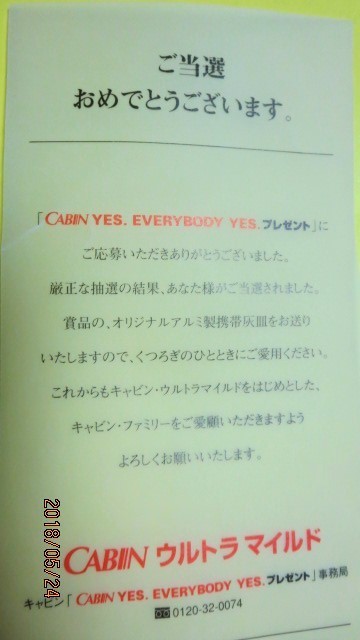 ご当選
おめでとうございます。
「CABIN YES. EVERYBODY YES.プレゼント」に
ご応募いただきありがとうございました。
厳正な抽選の結果、あなた様がご当選されました。
賞品の、オリジナルアルミ製携帯灰皿をお送り
いたしますので、くつろぎのひとときにご愛用ください。
これからもキャビン・ウルトラマイルドをはじめとした、
キャビン・ファミリーをご愛顧いただきますよう
よろしくお願いいたします。
CABIN ウルトラ マイルド
キャビン「CABIN YES. EVERYBODY YES.プレゼント」事務局
0120-32-0074
2018/05/24